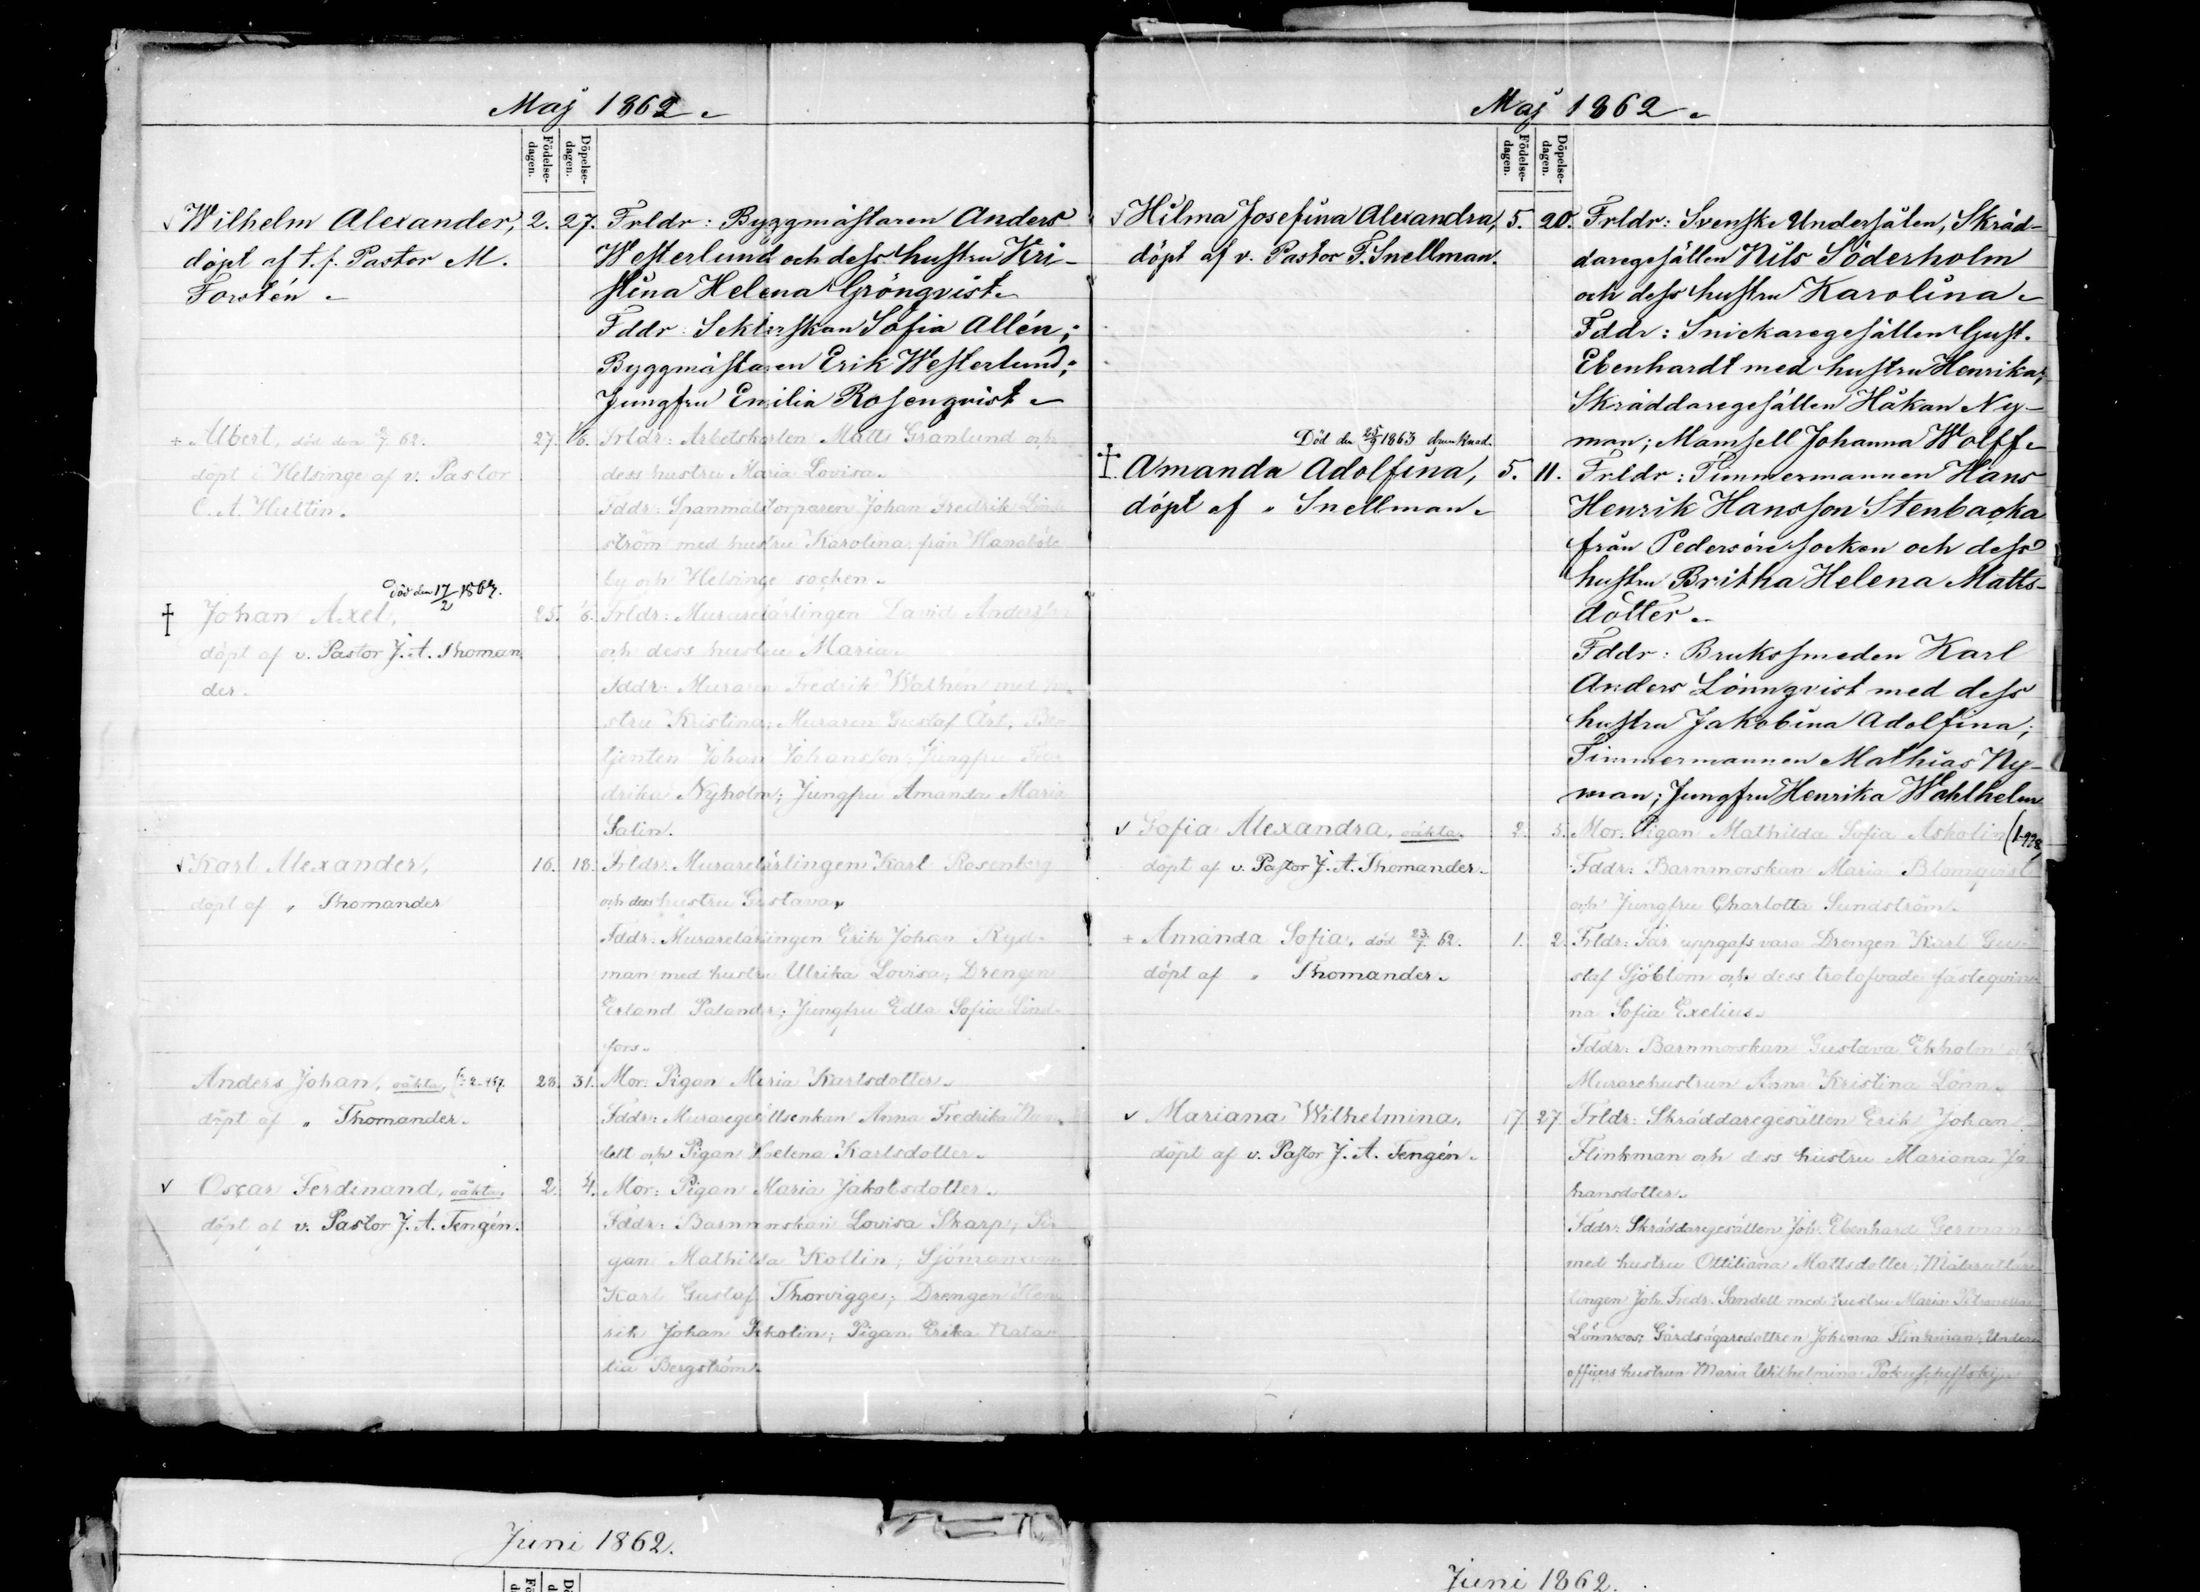 Maj 1862.
Födelse-
dagen.
Döpelse-
dagen.
Wilhelm Alexander, 2. 27. Frldr: Byggmästaren Anders
döpt af t.f. Pastor M. Westerlund och dess hustru Kri-
Forstén. stina Helena Grönqvist.
Fddr: Sekterskan Sofia Allén;
Byggmästaren Erik Westerlund;
Jungfru Emilia Rosenqvist.
+ Albert, död den 62. 27. Frldr: Arbetskarlen Matts Granlund och
döpt i Helsinge af v. Pastor dess hustru Maria Lovisa.
C. A. Hultin. Fddr: Spanmålstorparen Johan Fredrik Lind-
ström med hustru Karolina, från Hanaböle
by och Helsinge socken.
Död den 17/2 1867.
† Johan Axel, 25. 6. Frldr: Murarelärlingen David Anderson
döpt af v. Pastor J. A. Thoman- och dess hustru Maria.
der. Fddr: Muraren Fredrik Wathen med hu-
stru Kristina; Muraren Gustaf Ärt,
Johan Johansson; Jungfru Fre-
drika Nyholm; Jungfru Amanda Maria
Salin.
Karl Alexander, 16. 18. Frldr: Murarelärlingen Karl Rosenberg
döpt af " Thomander och dess hustru Gustava.
Fddr: Murarelärlingen Erik Johan Ryd-
man med hustru Ulrika Lovisa; Drengen
Erland Palander; Jungfru Edla Sofia Lind-
fors.
Anders Johan, oäkta, 28. 31. Mor: Pigan Maria Karlsdotter.
döpt af " Thomander. Fddr: Muraregesällsenkan Anna Fredrika
lell och Pigan Helena Karlsdotter.
Oscar Ferdinand, oäkta, 2. 4. Mor: Pigan Maria Jakobsdotter.
döpt af v. Pastor J. A. Tengén. Fddr: Barnmorskan Lovisa Skarp; Pi-
gan Mathilda Kollin; Sjömannen
Karl Gustaf Thorvigge; Drengen Hen-
rik Johan Ekholin; Pigan Erika Nata-
lia Bergström.
Maj 1862.
Födelse-
dagen.
Döpelse-
dagen.
Hilma Josefina Alexandra, 5. 20. Frldr: Svenske Undersåten, Skräd-
döpt af v. Pastor F. Snellman. daregesällen Nils Söderholm
och dess hustru Karolina.
Fddr: Snickaregesällen Gust.
Ebenhardt med hustru Henrika;
Skräddaregesällen Håkan Ny-
man; Mamsell Johanna Wolff.
Död den 25/9 1863 drunknad.
† Amanda Adolfina, 5. 11. Frldr: Timmermannen Hans
döpt af " Snellman. Henrik Hansson Stenbacka
från Pedersöre socken och dess
hustru Britha Helena Matts-
dotter.
Fddr: Bruksmeden Karl
Anders Lönnqvist med dess
hustru Jakobina Adolfina;
Timmermannen Mathias Ny-
man; Jungfru Henrika Wahlhelm
Sofia Alexandra, oäkta. 2. 5. Mor: Pigan Mathilda Sofia Asholin
döpt af v. Pastor J. A. Thomander. Fddr: Barnmorskan Maria Blomqvist
och Jungfru Charlotta Sundström.
+ Amanda Sofia, död 23/7 62. 1. 2. Frldr: Här uppgafs vara Drengen Karl Gu-
döpt af " Thomander. staf Sjöblom och dess trolofvade fästeqvin-
na Sofia Exelius.
Fddr: Barnmorskan Gustava Ekholm och
Murarehustrun Anna Kristina Lönn.
Mariana Wilhelmina, 17. 27. Frldr: Skräddaregesällen Erik Johan
döpt af v. Pastor J. A. Tengén. Flinkman och dess hustru Mariana Jo-
hansdotter.
Fddr: Skräddaregesällen Joh. Ebenhard German
med hustru Ottiliana Mattsdotter; Målarelär-
lingen Joh. Fredr. Sandell med hustru Maria Petronella
Lönnroos; Gårdsägaredottren Johanna Flinkman; Under-
officers hustrun Maria Wilhelmina
Juni 1862.
Juni 1862.